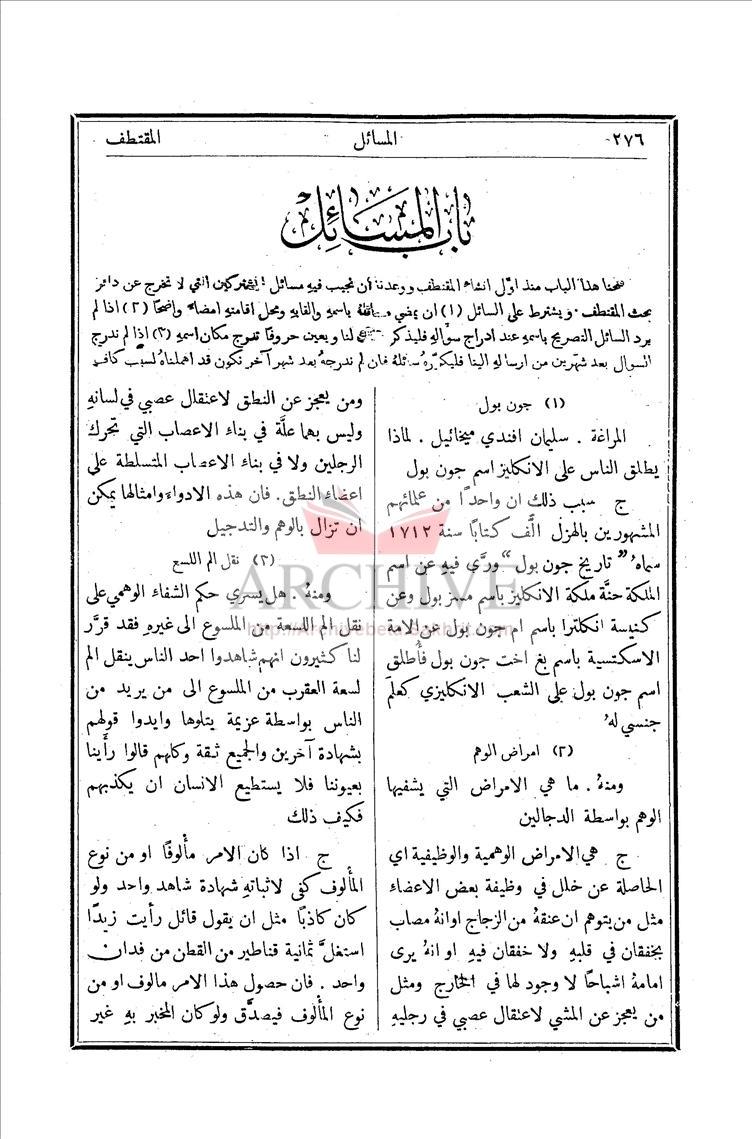 ٢٧٦
المسائل
المقتطف
باب المسائل
فتحنا هذا الباب منذ اوّل انشاء المقتطف ووعدنا أن نجيب فيه مسائل المشتركين التي لا تخرج عن دائرة
بحث المقتطف. ويشترط على السائل (١) ان يمضي مسائلهُ باسمهِ والقابهِ ومحل اقامتهِ امضاءً واضحًا (٢) اذا لم
يرد السائل التصريح باسمهِ عند ادراج سؤالهِ فليذكر ذلك لنا ويعين حروفًا تدرج مكان اسمهِ (٣) اذا لم ندرج
السوال بعد شهرين من ارسالهِ الينا فليكرّرهُ سائلهُ فان لم ندرجهُ بعد شهر آخر نكون قد اهملناهُ لسبب كافٍ
(١) جون بول
المراغة . سليمان افندي ميخائيل . لماذا
يطلق الناس على الانكليز اسم جون بول
ج سبب ذلك ان واحدًا من علمائهم
المشهورين بالهزل الَّف كتابًا سنة ١٧١٢
سماهُ "تاريخ جون بول" ورَّى فيهِ عن اسم
الملكة حنَّة ملكة الانكليز باسم مسز بول وعن
كنيسة انكلترا باسم ام جون بول عن الامة
الاسكتسية باسم بغ اخت جون بول فأُطلق
اسم جون بول على الشعب الانكليزي كعلَم
جنسي لهُ
(٢) امراض الوهم
ومنهُ . ما هي الامراض التي يشفيها
الوهم بواسطة الدجالين
ج هي الامراض الوهمية والوظيفية اي
الحاصلة عن خلل في وظيفة بعض الاعضاء
مثل من يتوهم ان عنقهُ من الزجاج او انهُ مصاب
بخفقان في قلبهِ ولا خفقان فيهِ او انهُ يرى
امامهُ اشباحًا لا وجود لها في الخارج ومثل
من يعجز عن المشي لاعتقال عصبي في رجليهِ
ومن يعجز عن النطق لاعتقال عصبي في لسانهِ
وليس بهما علَّة في بناء الاعصاب التي تحرك
الرجلين ولا في بناء الاعصاب المتسلطة على
اعضاء النطق. فان هذه الادواء وامثالها يمكن
ان تزال بالوهم والتدجيل
(٣) نقل الم اللسع
ومنهُ . هل يسري حكم الشفاء الوهمي على
نقل الم اللسعة من الملسوع الى غيرهِ فقد قرَّر
لنا كثيرون انهم شاهدوا احد الناس ينقل الم
لسعة العقرب من الملسوع الى من يريد من
الناس بواسطة عزيمة يتلوها وايدوا قولهم
بشهادة آخرين والجميع ثقة وكلهم قالوا رأينا
بعيوننا فلا يستطيع الانسان ان يكذبهم
فكيف ذلك
ج اذا كان الامر مألوفًا او من نوع
المألوف كفى لاثباتهِ شهادة شاهد واحد ولو
كان كاذبًا مثل ان يقول قائل رأيت زيدًا
استغلَّ ثمانية قناطير من القطن من فدان
واحد . فان حصول هذا الامر مالوف او من
نوع المألوف فيصدَّق ولو كان المخبر بهِ غير
ARCHIVE
http://Archivebeta.Sakhrit.com